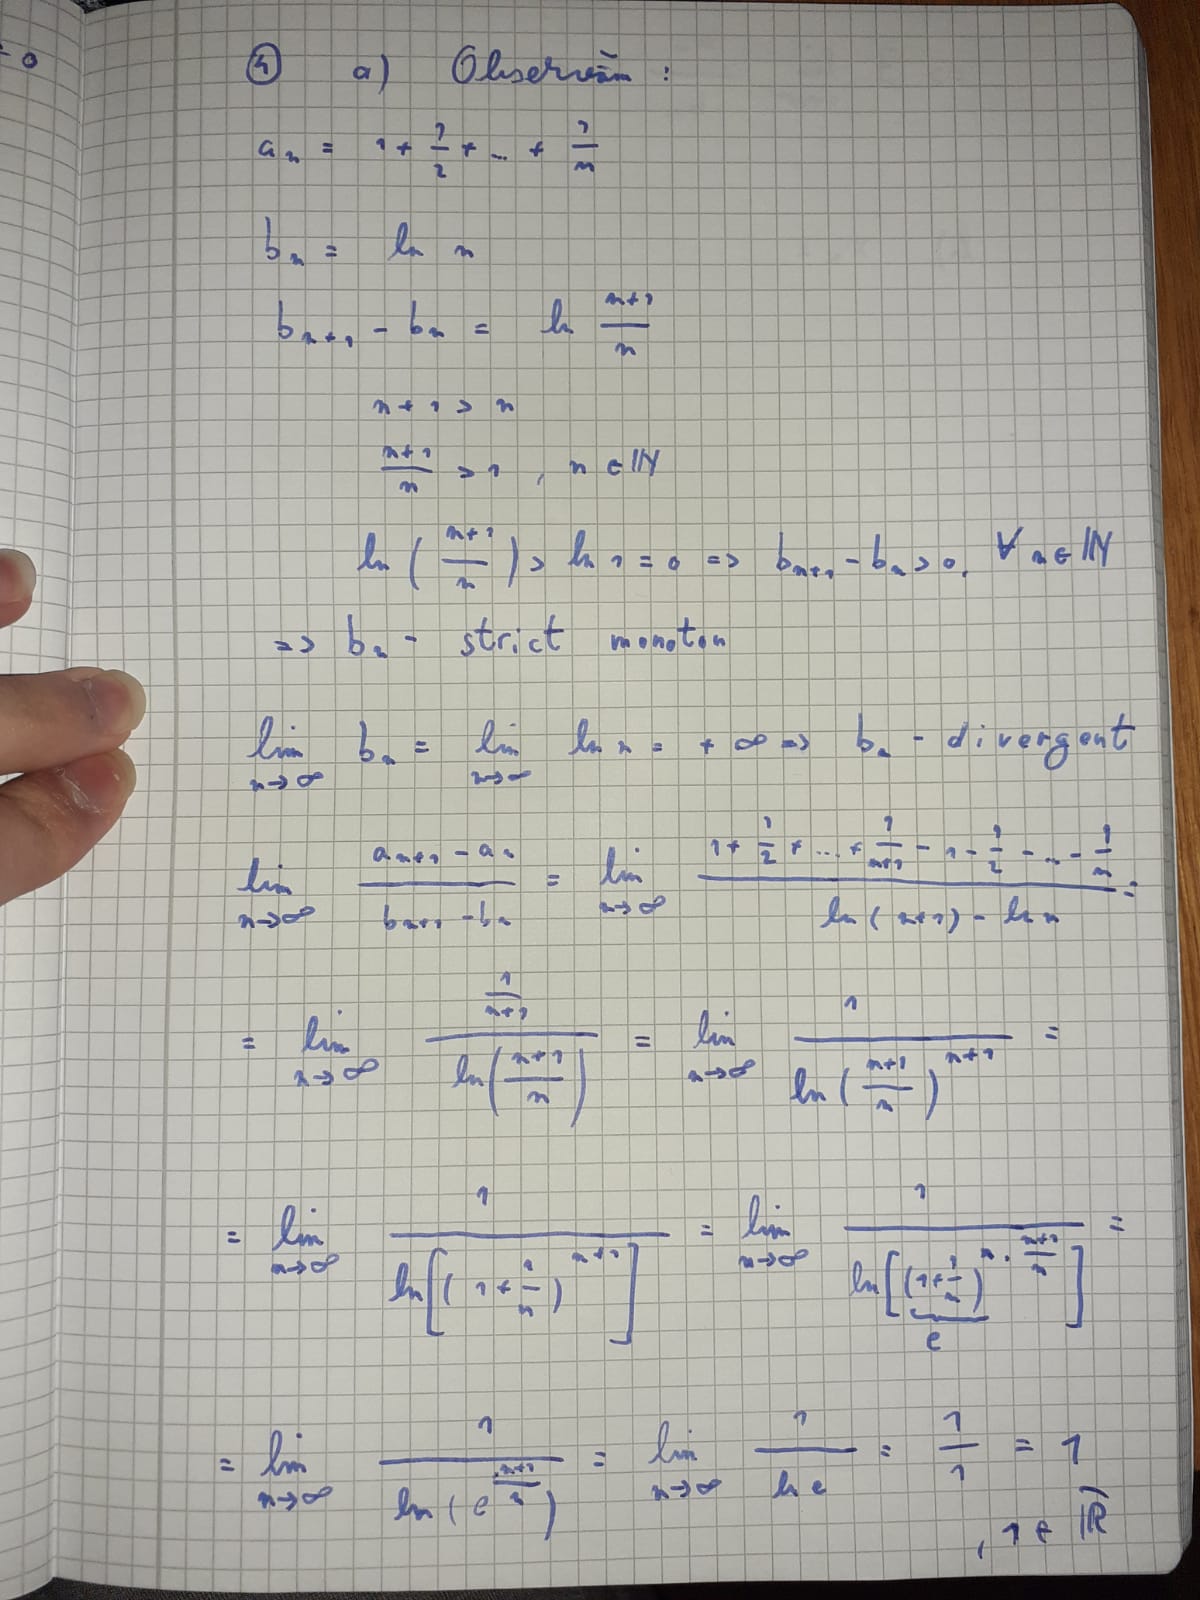 = 0
④ a) Observăm :
a_n = 1 + 1/2 + ... + 1/n
b_n = ln n
b_{n+1} - b_n = ln (n+1)/n
n + 1 > n
(n+1)/n > 1 , n ∈ ℕ
ln ( (n+1)/n ) > ln 1 = 0 => b_{n+1} - b_n > 0, ∀ n ∈ ℕ
=> b_n - strict monoton
lim_{n→∞} b_n = lim_{n→∞} ln n = + ∞ => b_n - divergent
lim_{n→∞} (a_{n+1} - a_n)/(b_{n+1} - b_n) = lim_{n→∞} (1 + 1/2 + ... + 1/(n+1) - 1 - 1/2 - ... - 1/n)/(ln (n+1) - ln n) =
= lim_{n→∞} (1/(n+1))/(ln((n+1)/n)) = lim_{n→∞} 1/(ln ((n+1)/n)^{n+1}) =
= lim_{n→∞} 1/(ln[(1 + 1/n)^{n+1}]) = lim_{n→∞} 1/(ln[(1 + 1/n)^{n · (n+1)/n}]) =
e
= lim_{n→∞} 1/(ln (e^{(n+1)/n})) = lim_{n→∞} 1/(ln e) = 1/1 = 1
, 1 ∈ ℝ̄